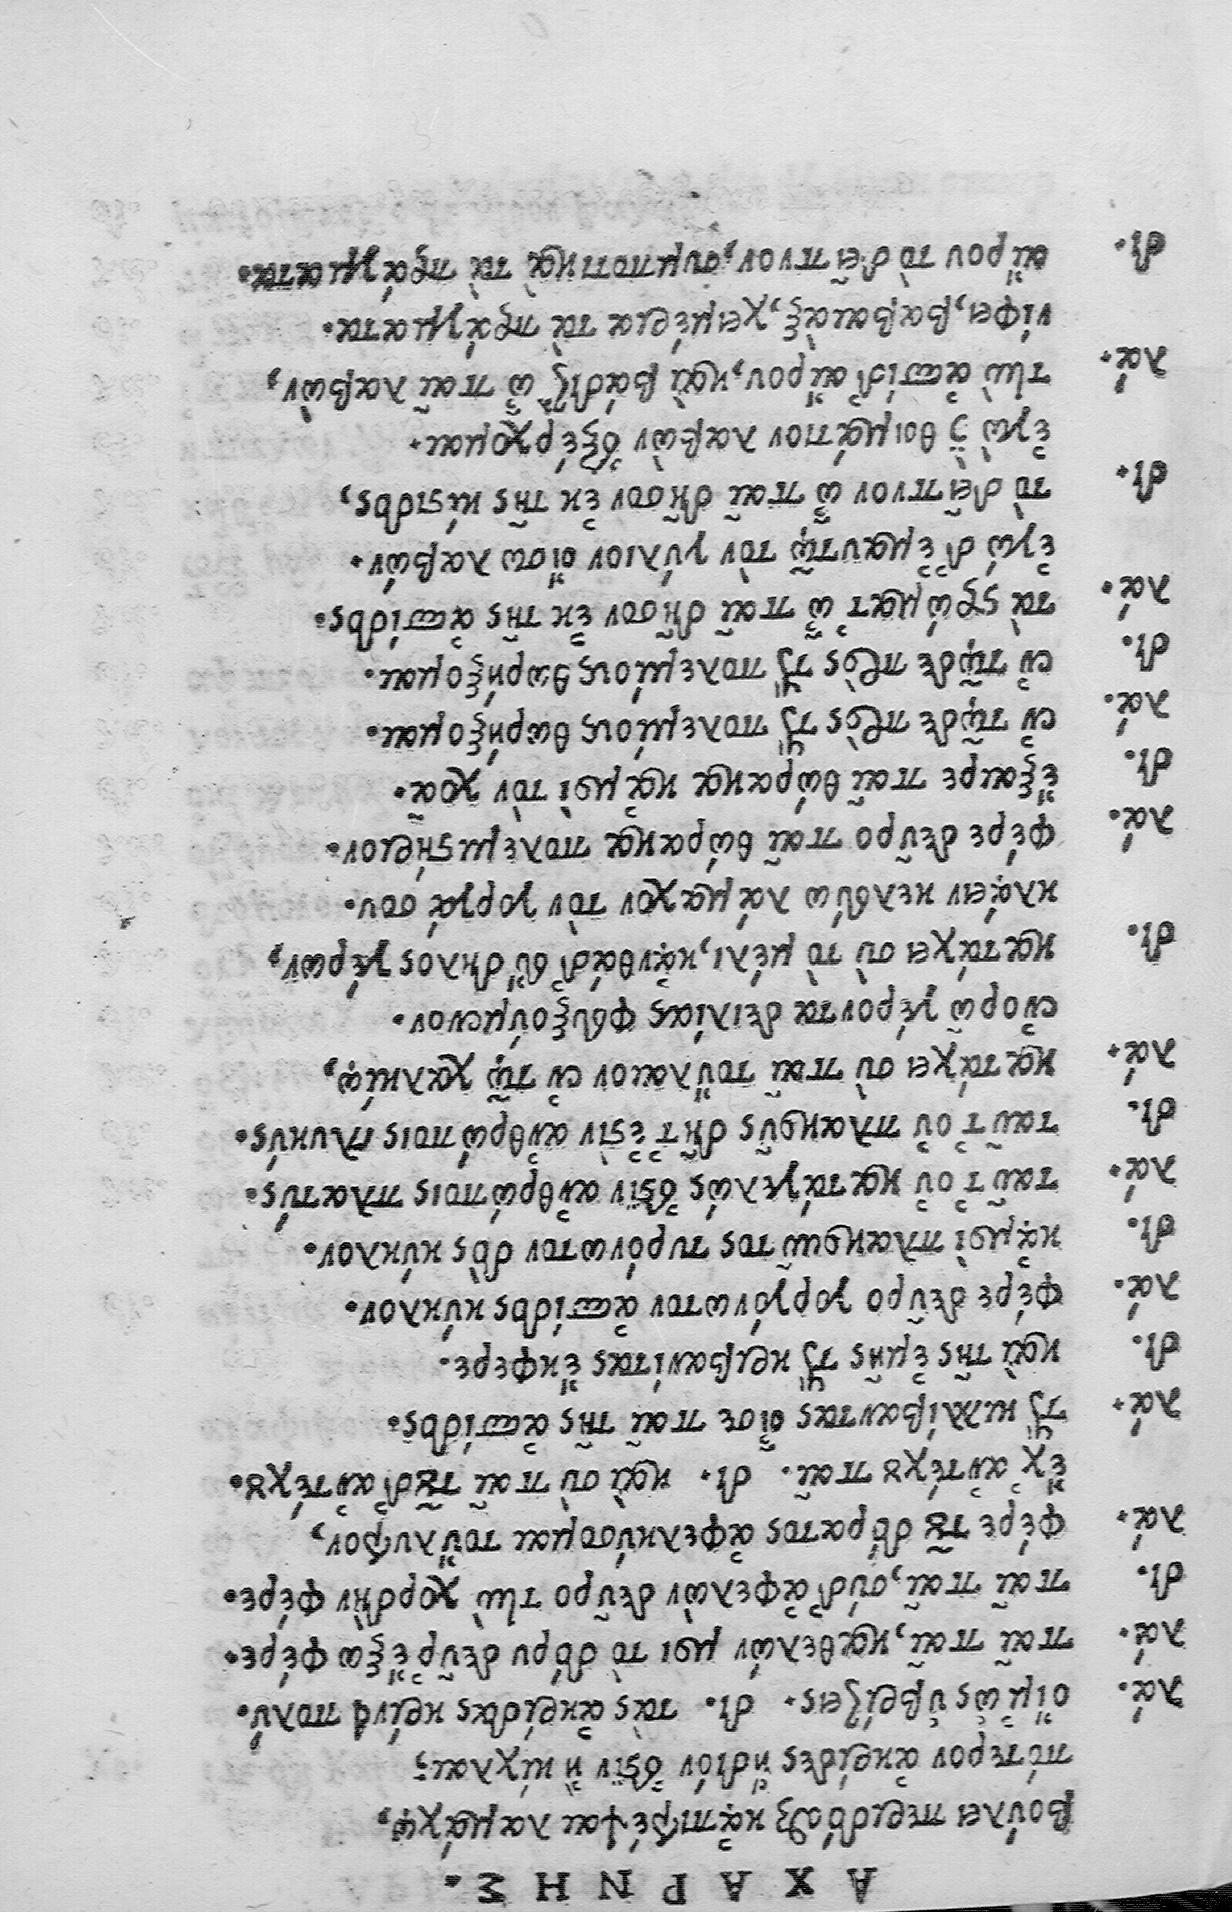 Α Χ Α Ρ Ν Η Σ .
βούλει περιδόσθαι κἀπιτρέψαι λαμάχῳ,
πότερον ἀκρίδες ἥδιόν ἐστιν ἢ κίχλαι;
λά. οἴμ' ὡς ὑβρίζεις. δι. τὰς ἀκρίδας κρίνει πολύ.
λά. παῖ παῖ, καθελών μοι τὸ δόρυ δεῦρ' ἔξω φέρε.
δι. παῖ παῖ, σὺ δ' ἀφελὼν δεῦρο τὴν χορδὴν φέρε.
λά. φέρε τοῦ δόρατος ἀφελκύσομαι τοὔλυτρον,
ἔχ' ἀντέχου παῖ. δι. καὶ σὺ παῖ τοῦδ' ἀντέχου.
λά. τοὺς κιλλίβαντας οἶσε παῖ τῆς ἀσπίδος.
δι. καὶ τῆς ἐμῆς τοὺς κριβανίτας ἔκφερε.
λά. φέρε δεῦρο γοργόνωτον ἀσπίδος κύκλον.
δι. κἀμοὶ πλακοῦντος τυρόνωτον δὸς κύκλον.
λά. ταῦτ' οὐ κατάγελώς ἐστιν ἀνθρώποις πλατύς.
δι. ταῦτ' οὐ πλακοῦς δῆτ' ἐστὶν ἀνθρώποις γλυκύς.
λά. κατάχει σὺ παῖ τοὔλαιον ἐν τῷ χαλκίῳ,
ἐνορῶ γέροντα δειλίας φευξούμενον.
δι. κατάχει σὺ τὸ μέλι, κἀνθάδ' εὔδηλος γέρων,
κλάειν κελεύω λάμαχον τὸν γοργάσου.
λά. φέρε δεῦρο παῖ θώρακα πολεμιστήριον.
δι. ἔξαιρε παῖ θώρακα κἀμοὶ τὸν χόα.
λά. ἐν τῷδε πρὸς τοὺς πολεμίους θωρήξομαι.
δι. ἐν τῷδε πρὸς τοὺς πολεμίους θωρήξομαι.
λά. τὰ στρώματ' ὦ παῖ δῆσον ἐκ τῆς ἀσπίδος.
ἐγὼ δ' ἐμαυτῷ τὸν γύλιον οἴσω λαβών.
δι. τὸ δεῖπνον ὦ παῖ δῆσον ἐκ τῆς κίστιδος,
ἐγὼ δὲ θοιμάτιον λαβὼν ἐξέρχομαι.
λά. τὴν ἀσπίδ' αἴρου, καὶ βάδιζ' ὦ παῖ λαβών,
νίφει, βαβαιάξ, χειμέρια τὰ πράγματα.
δι. αἴρου τὸ δεῖπνον, συμποτικὰ τὰ πράγματα.